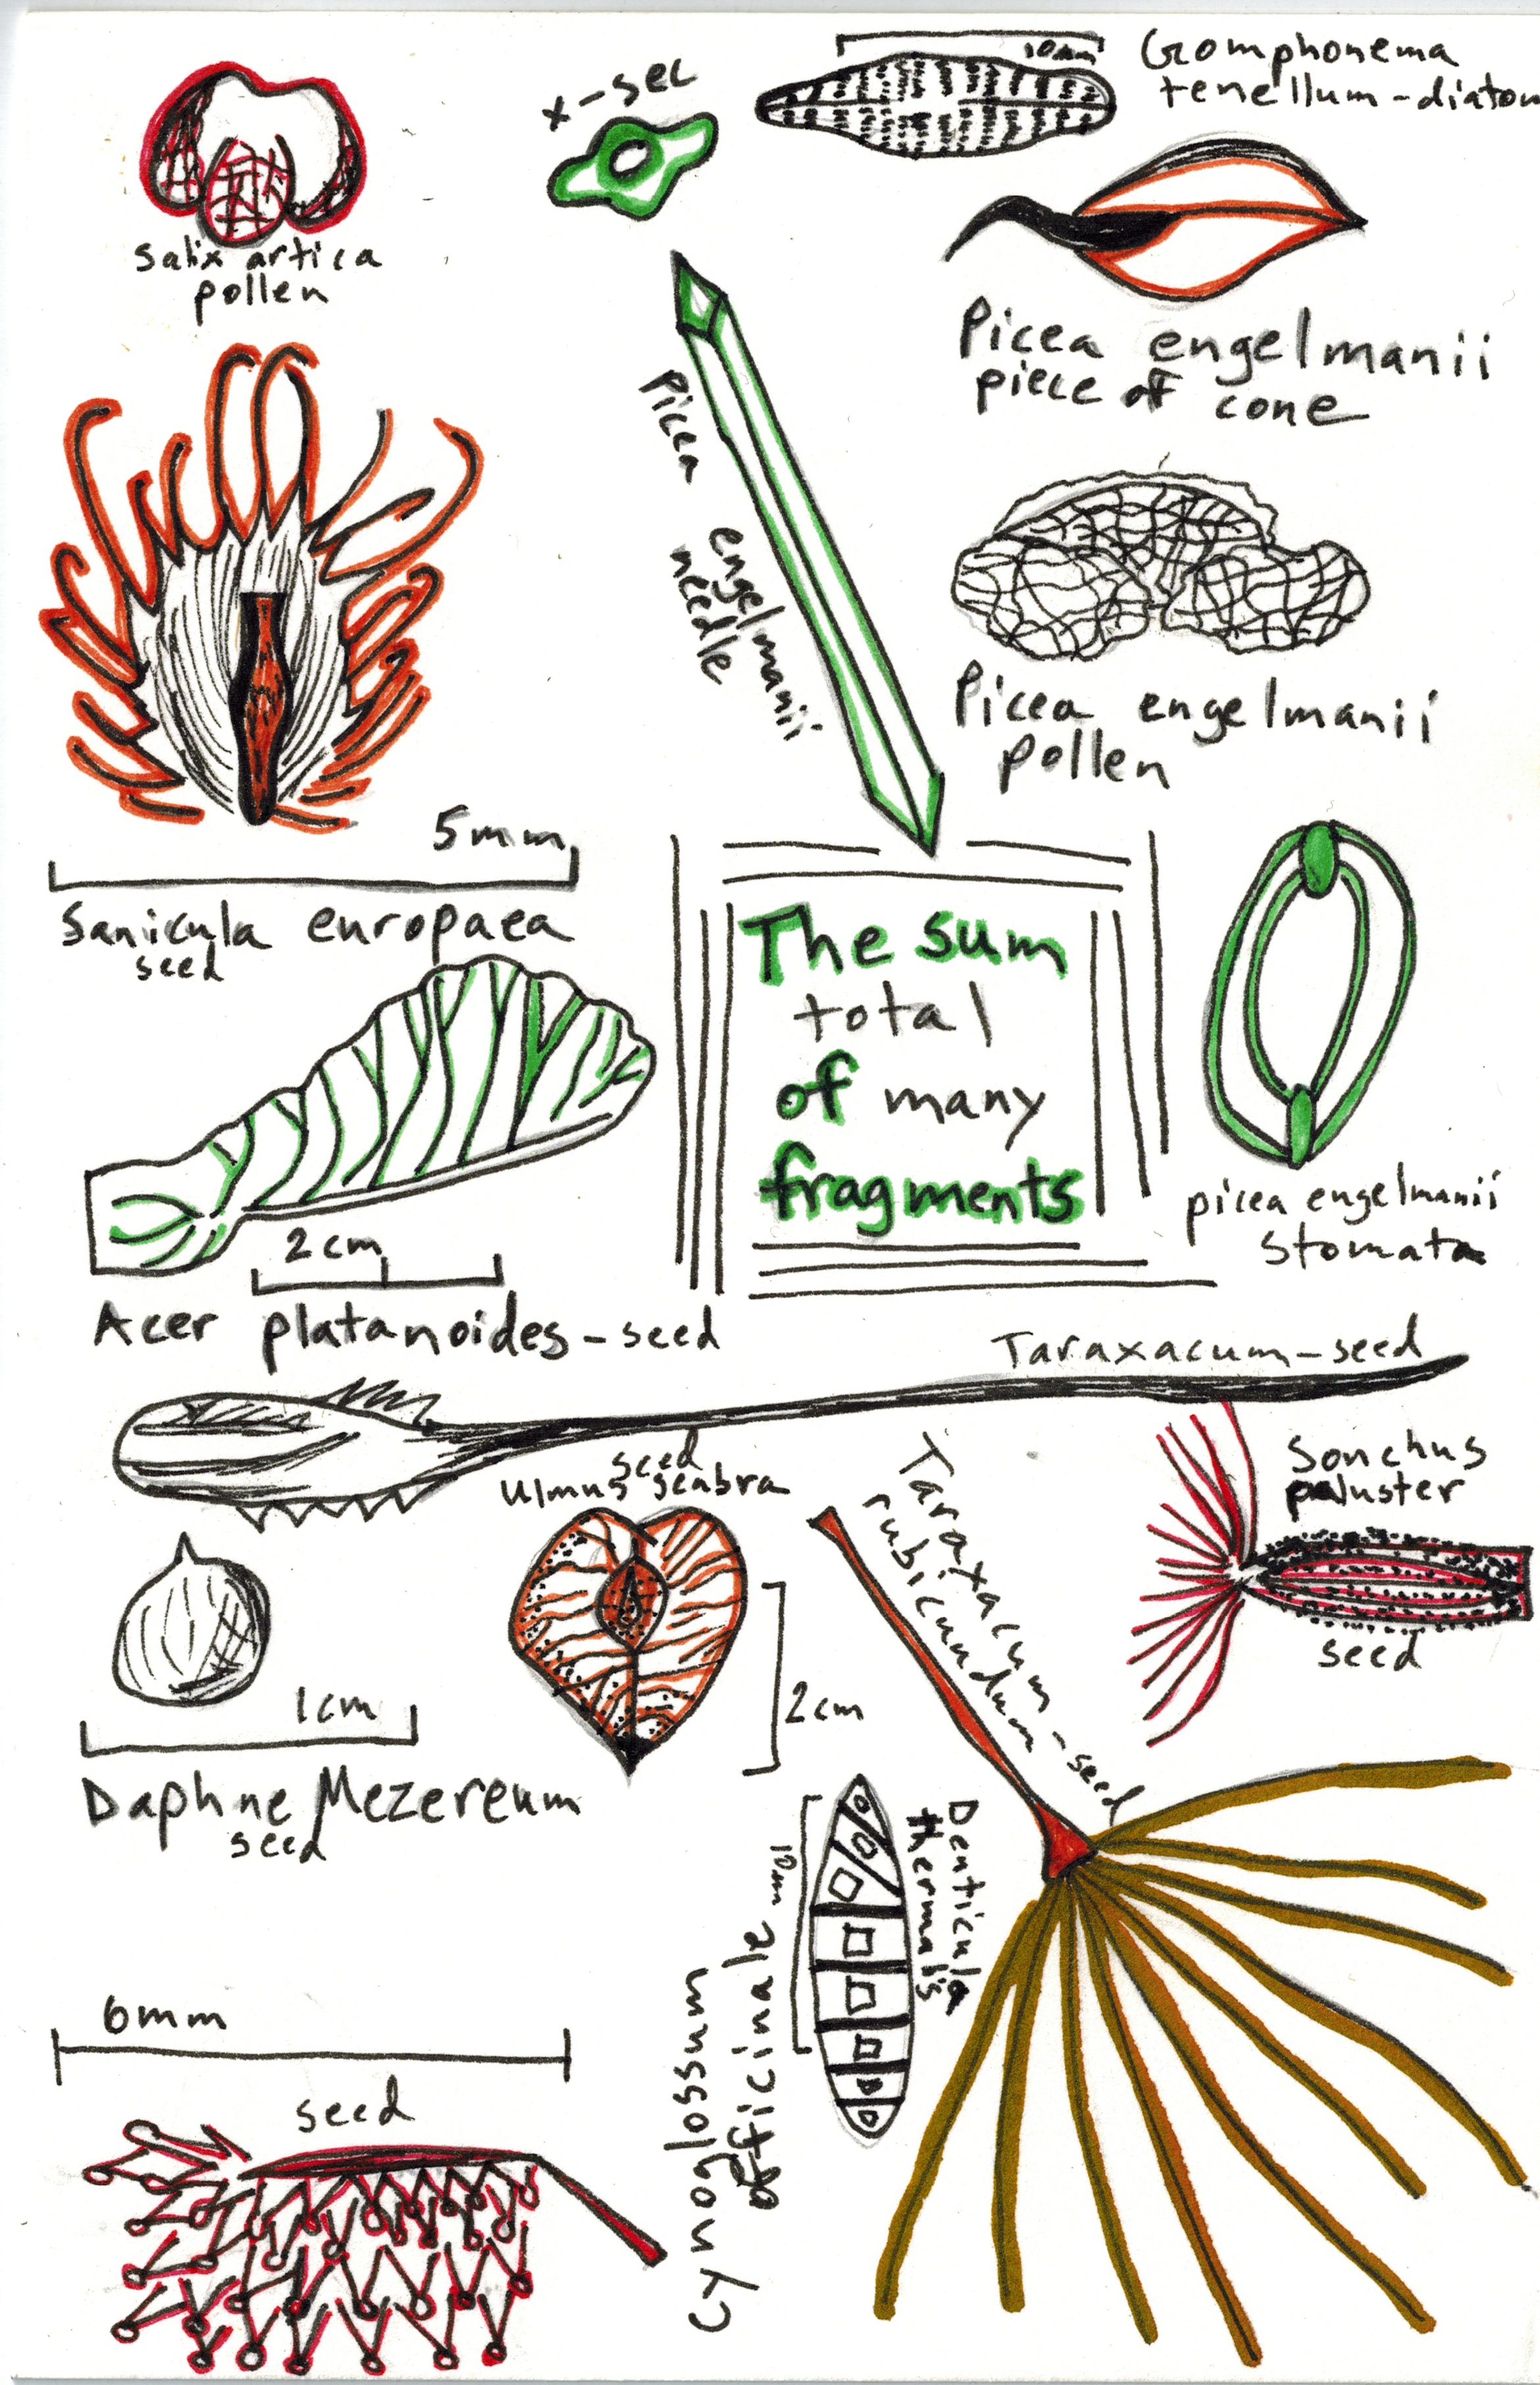 x-sec
10mm
Gomphonema
tenellum-diatom
Salix artica
pollen
Picea engelmanii
piece of cone
Picea engelmanii
needle
Picea engelmanii
pollen
5mm
Sanicula europaea
seed
The sum
total
of many
fragments
picea engelmanii
stomata
2cm
Acer platanoides-seed
Taraxacum-seed
seed
Ulmus scabra
2cm
Taraxacum
rubicundum-seed
Sonchus
paluster
seed
1cm
Daphne Mezereum
seed
Denticula
thermalis
Cynoglossum
officinale
6mm
seed